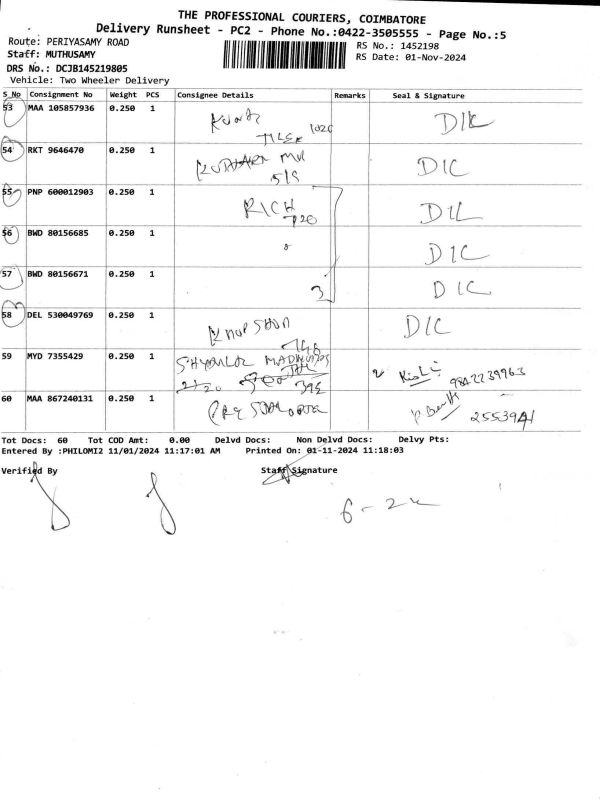 THE PROFESSIONAL COURIERS, COIMBATORE
Delivery Runsheet - PC2 - Phone No.:0422-3505555 - Page No.:5
Route: PERIYASAMY ROAD
RS No.: 1452198
Staff: MUTHUSAMY
RS Date: 01-Nov-2024
DRS No.: DCJB145219805
Vehicle: Two Wheeler Delivery
S_No Consignment No Weight PCS Consignee Details Remarks Seal & Signature
53 MAA 105857936 0.250 1 1020 DIL
54 RKT 9646470 0.250 1 519 DIC
55 PNP 600012903 0.250 1 RICH 720 DIL
56 BWD 80156685 0.250 1 DIC
57 BWD 80156671 0.250 1 3 DIC
58 DEL 530049769 0.250 1 DIC
59 MYD 7355429 0.250 1 395 9842239963
60 MAA 867240131 0.250 1 2553941
Tot Docs: 60 Tot COD Amt: 0.00 Delvd Docs: Non Delvd Docs: Delvy Pts:
Entered By :PHILOMI2 11/01/2024 11:17:01 AM Printed On: 01-11-2024 11:18:03
Verified By Staff Signature